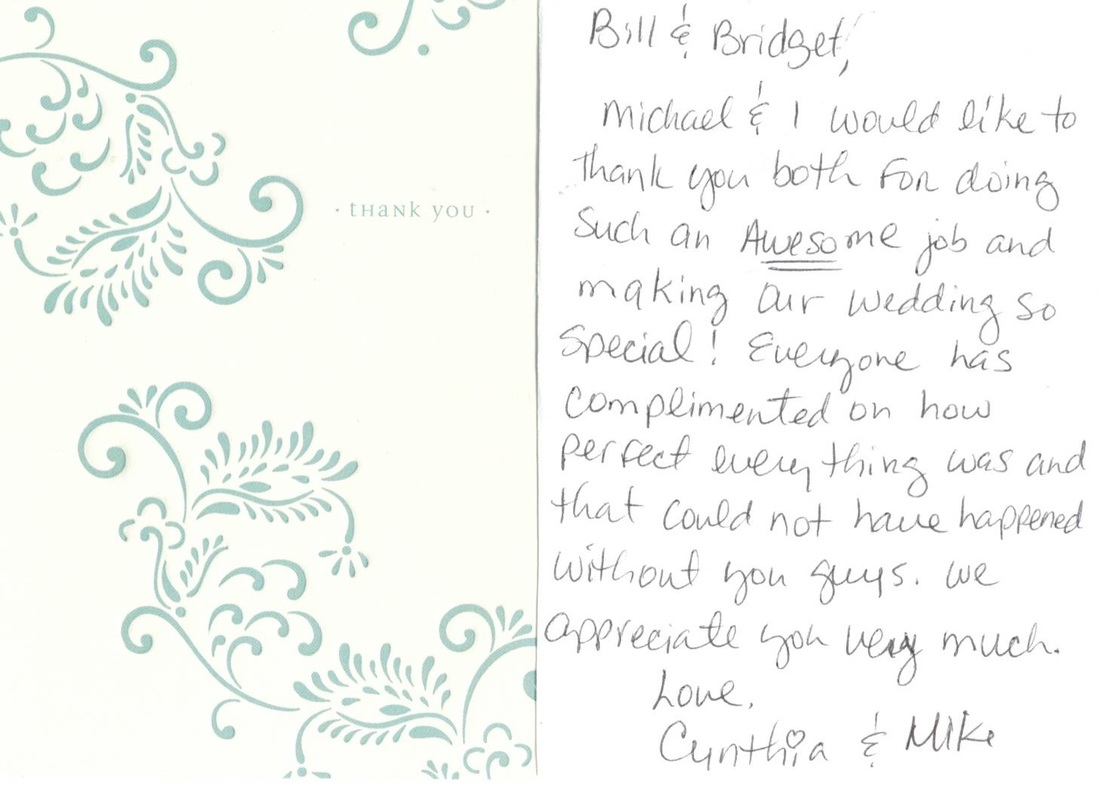 · THANK YOU ·
Bill & Bridget,
Michael & I would like to
thank you both for doing
such an Awesome job and
making our wedding so
special! Everyone has
complimented on how
perfect everything was and
that could not have happened
without you guys. We
appreciate you very much.
Love,
Cynthia & Mike